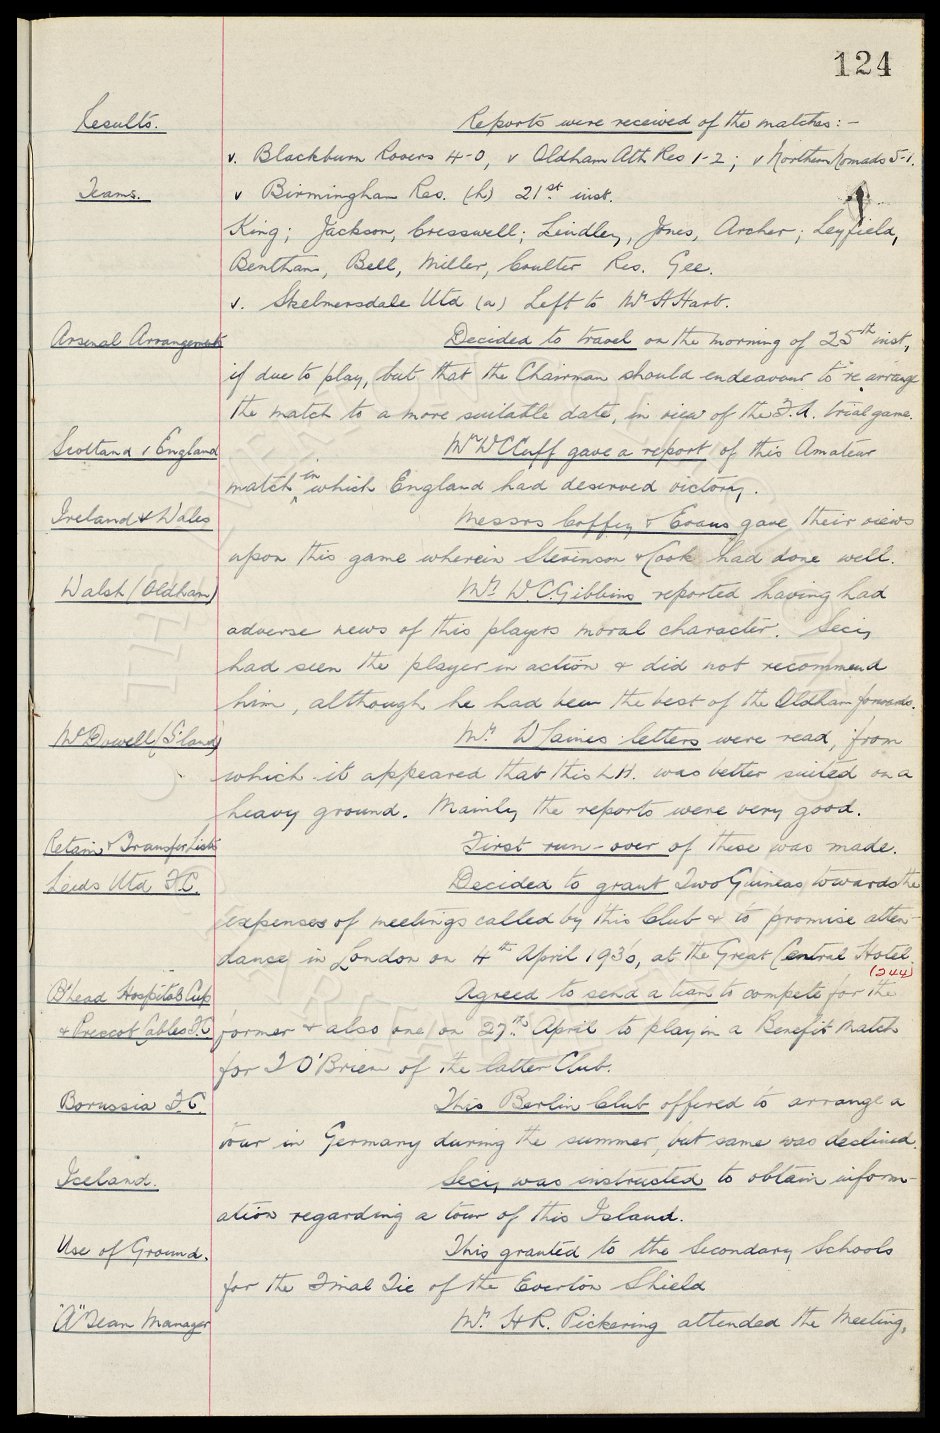 124
Results. Reports were received of the matches: -
v. Blackburn Rovers 4-0, v Oldham Ath Res 1-2; v Northern Nomads 5-1.
Teams. v Birmingham Res. (h) 21st inst.
King; Jackson, Cresswell; Lindley, Jones, Archer; Leyfield,
Bentham, Bell, Miller, Coulter Res. Gee.
v. Skelmersdale Utd (a) Left to Mr H Hart.
Arsenal Arrangements Decided to travel on the morning of 25th inst,
if due to play, but that the Chairman should endeavour to re arrange
the match to a more suitable date, in view of the F.A. trial game.
Scotland v England Mr W C Cuff gave a report of this Amateur
match, in which England had deserved victory.
Ireland v Wales Messrs Coffey & Evans gave their views
upon this game wherein Stevinson & Cook had done well.
Walsh (Oldham) Mr. W.C. Gibbins reported having had
adverse news of this players moral character. Secy,
had seen the player in action & did not recommend
him, although he had been the best of the Oldham forwards.
McDowell (S'land) Mr. W Saines letters were read, from
which it appeared that this L.H. was better suited on a
heavy ground. Mainly the reports were very good.
Retain & Transfer Lists First run-over of these was made.
Leeds Utd F.C. Decided to grant Two Guineas towards the
expenses of meetings called by this Club & to promise atten-
dance in London on 4th April 1936, at the Great Central Hotel.
(244)
B'head Hospitals Cup Agreed to send a team to compete for the
& Prescot Cables F.C former & also one on 27th. April to play in a Benefit Match
for T O'Brien of the latter Club.
Borussia F.C. This Berlin Club offered to arrange a
tour in Germany during the summer, but same was declined.
Iceland. Secy, was instructed to obtain inform-
ation regarding a tour of this Island.
Use of Ground. This granted to the Secondary Schools
for the Final Tie of the Everton Shield
"A" Team Manager Mr. H R. Pickering attended the Meeting,